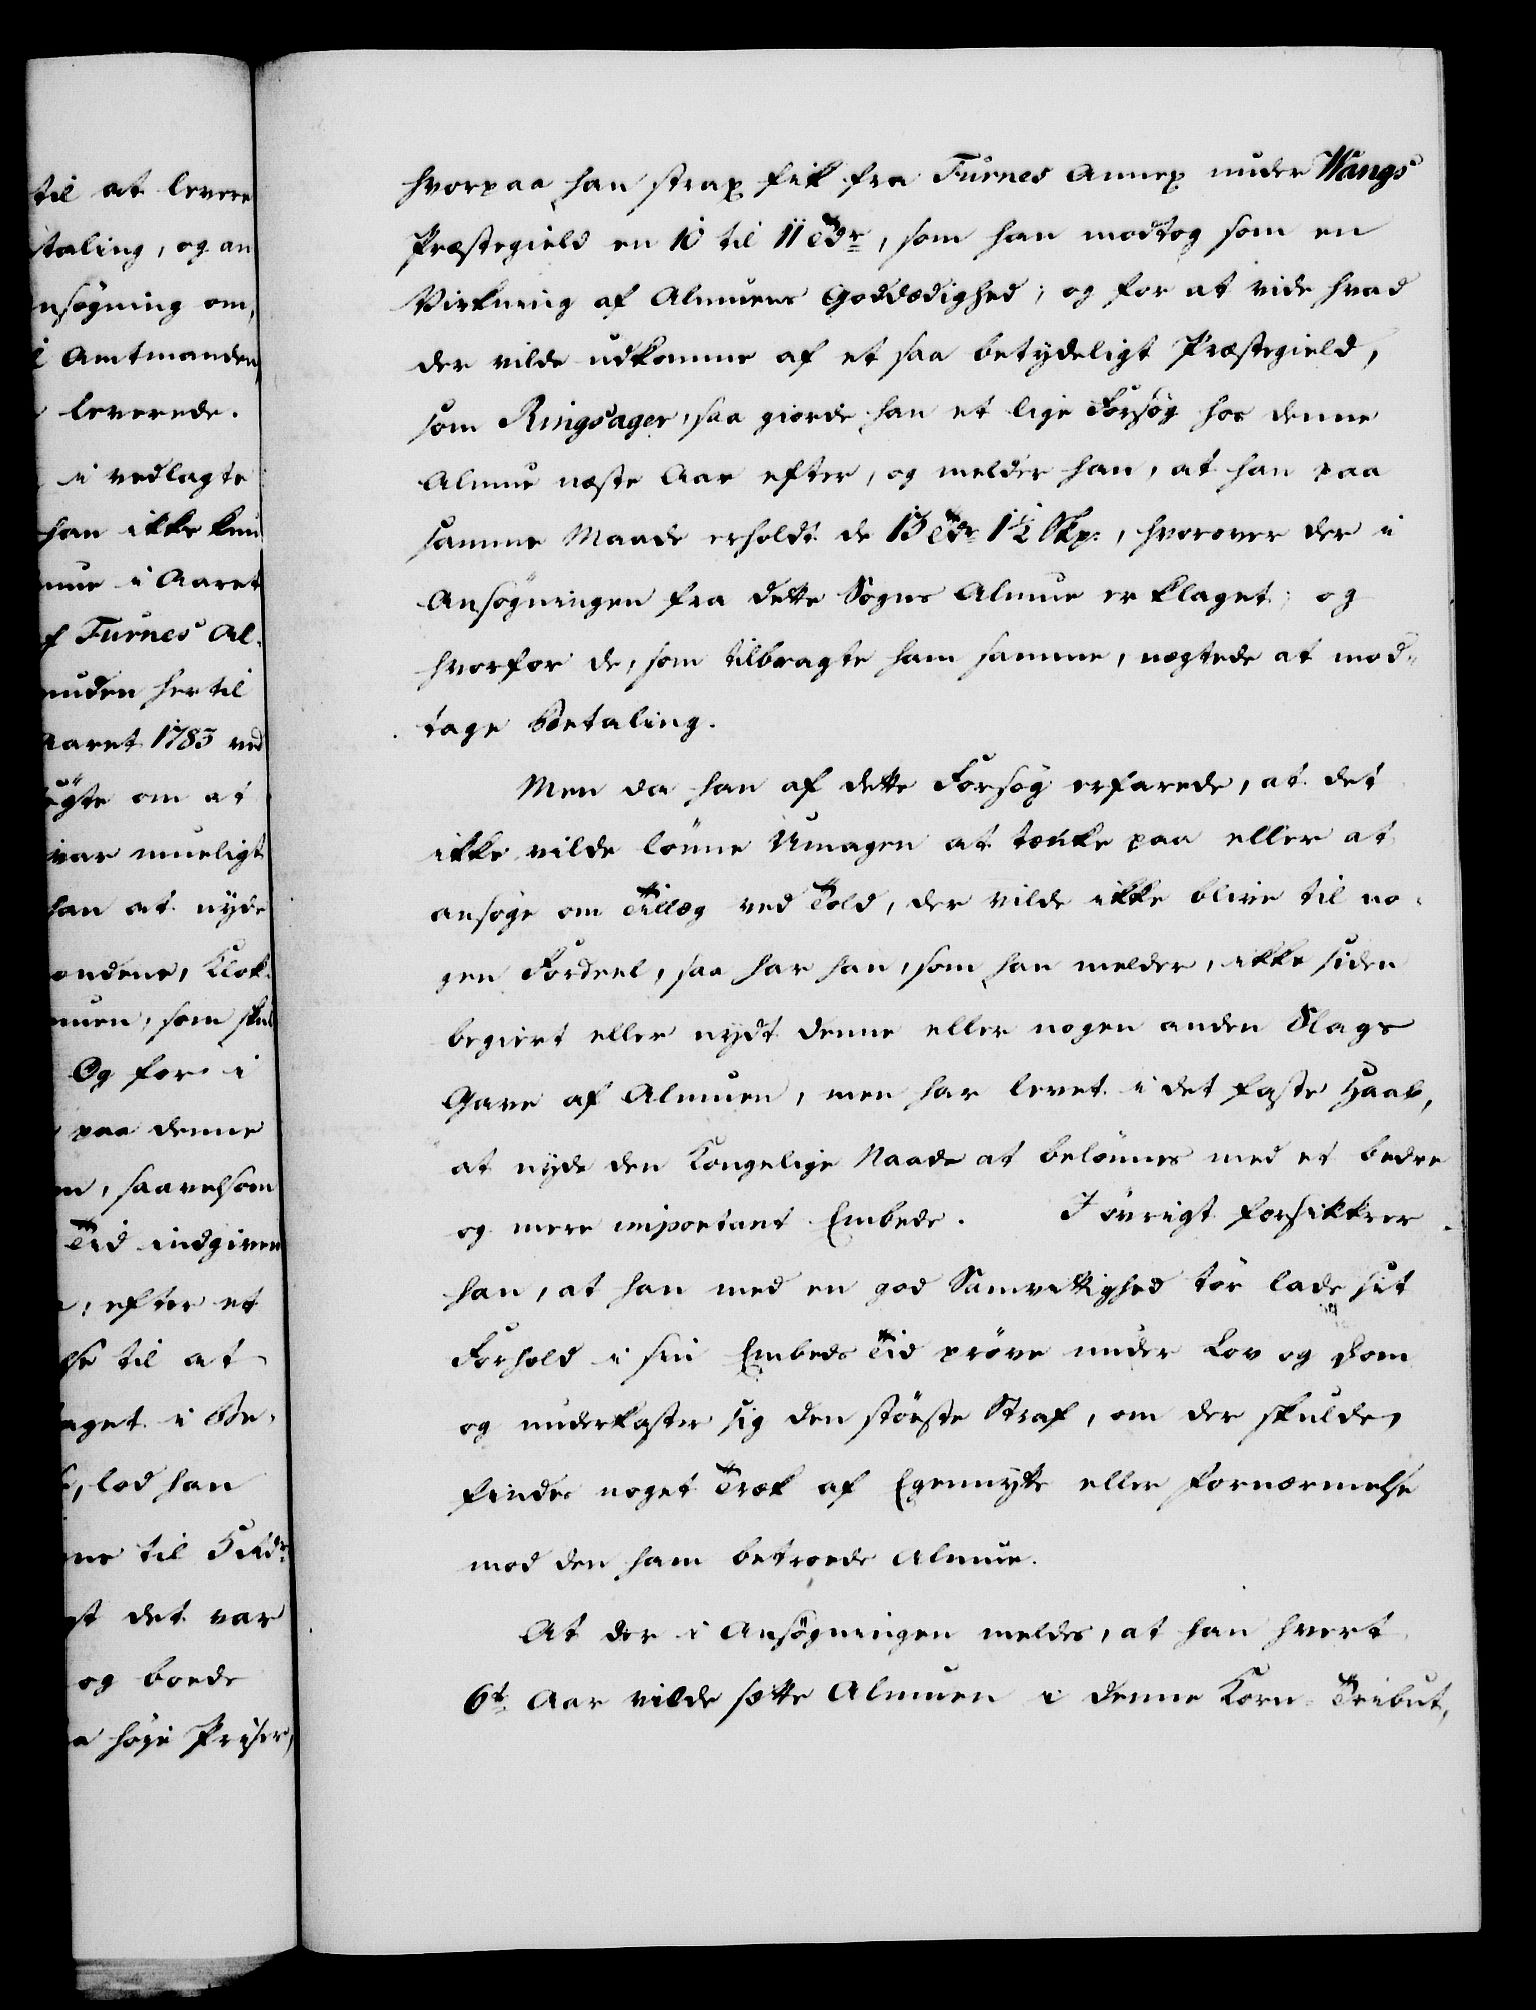 til at levere
taling, og an
nsøgning om,
Amtmanden,
leverede.
i vedlagte
han ikke kun
mue i Aaret
f Furnes Al-
muden hertil
Aaret 1785 ved
øgte om at
var mueligt
han at nyde
ondene, Klok-
muen, som skul
Og for i
paa denne
m, saavelsom
Tid indgiven
, efter et
lse til at
aget i Be-
, lod han
ns til 5 Tdr
st det var
og boede
a høje Priser,
hvorpaa han strax fik fra Furnes Annex under Wangs
Præstegield en 10 til 11 Tdr, som han modtog som en
Virkning af Almuens Goddædighed; og for at vide hvad
der vilde udkomme af et saa betydeligt Præstegield,
som Ringsager, saa giorde han et lige Forsøg hos denne
Almue næste Aar efter, og melder han, at han paa
samme Maade erholdt de 13 Tdr 1½ Skp:, hvorover der i
Ansøgningen fra dette Sogns Almue er klaget; og
hvorfor de, som tilbragte ham samme, nægtede at mod-
tage Betaling.
Men da han af dette Forsøg erfarede, at det
ikke vilde lønne Umagen at tænke paa eller at
ansøge om Tillæg ved Told, der vilde ikke blive til no-
gen Fordeel, saa har han, som han melder, ikke siden
begiert eller nydt denne eller nogen anden Slags
Gave af Almuen, men har levet i det faste Haab,
at nyde den Kongelige Naade at belønnes med et bedre
og mere important Embede. I øvrigt forsikkrer
han, at han med en god Samvittighed tør lade sit
Forhold i sin Embeds Tid prøve under Lov og Dom
og underkaster sig den største Straf, om der skulde
findes noget Træk af Egennytte eller Fornærmelse
mod den ham betroede Almue.
At der i Ansøgningen meldes, at han hvert
6te Aar vilde sætte Almuen i denne Korn-Tribut,